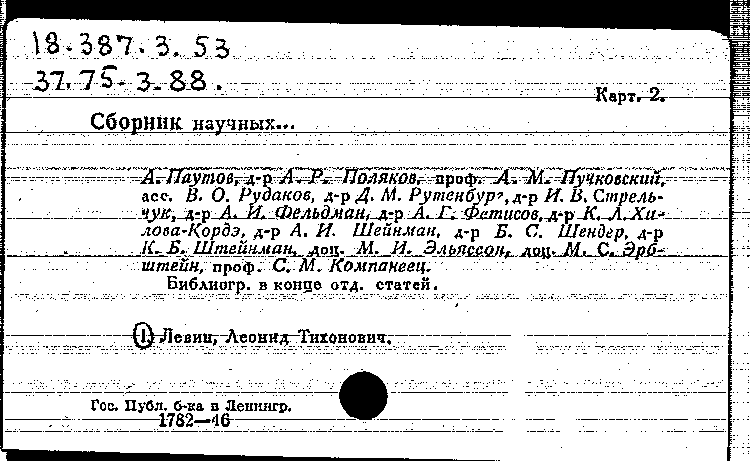 18.387.3.53
37.75-3-88.
Карт. 2.
Сборник научных...
А. Паутов, д-р А. Р. Поляков, проф. А. М. Пучковский,
асс. В. О. Рудаков, д-р Д. М. Рутенбург, д-р И. В. Стрель-
чук, д-р А. И. Фельдман, д-р А. Г. Фетисов, д-р К. Л. Хи-
лова-Кордэ, д-р А. И. Шейнман, д-р Б. С. Шендер, д-р
К. Б. Штейнман, доц. М. И. Эльяссон, доц. М. С. Эрб-
штейн, проф. С. М. Компанеец.
Библиогр. в конце отд. статей.
1) Левин, Леонид Тихонович.
Гос. Публ. б-ка в Ленингр.
1782—46